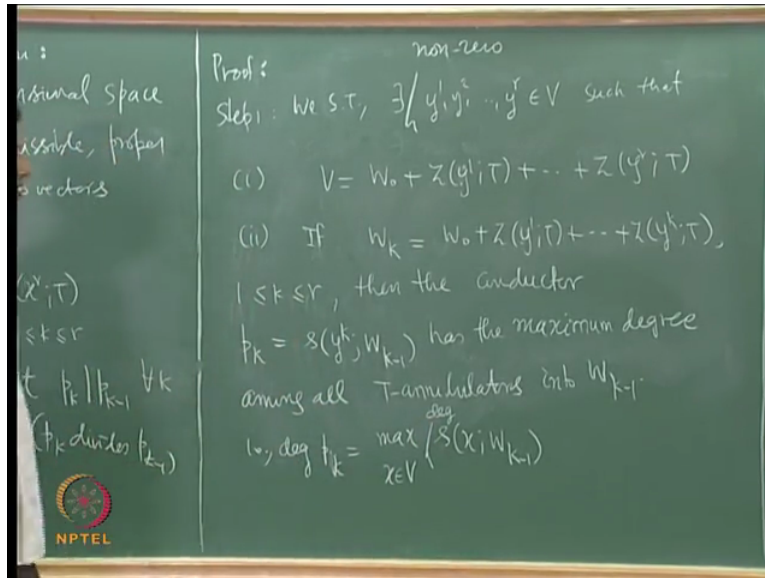 nsional space
issible, proper
vectors
(x^r; T)
≤ k ≤ r
p_k | p_{k-1} ∀k
(p_k divides p_{k-1})
Proof:
non-zero
Step 1: We S.T, ∃ y^1, y^2, .., y^r ∈ V such that
(i) V = W_0 + Z(y^1; T) + ... + Z(y^r; T)
(ii) If W_k = W_0 + Z(y^1; T) + ... + Z(y^k; T),
1 ≤ k ≤ r, then the conductor
p_k = s(y^k; W_{k-1}) has the maximum degree
among all T-annihilators into W_{k-1}.
ie, deg p_k = max_{x∈V} deg s(x; W_{k-1})
NPTEL